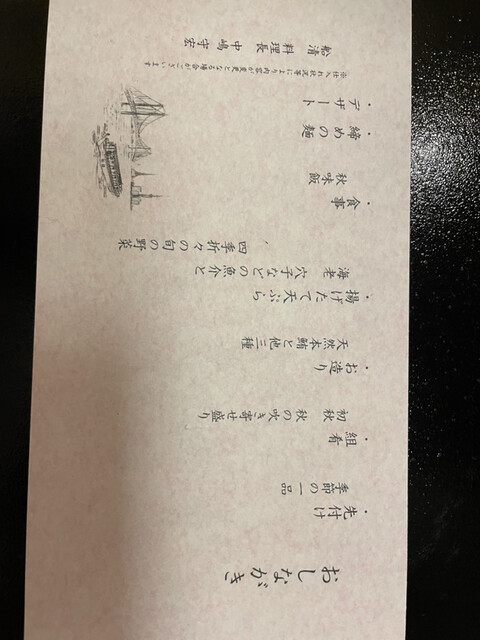 おしながき
・先付け
季節の一品
・組肴
初秋 秋の吹き寄せ盛り
・お造り
天然本鮪と他三種
・揚げたて天ぷら
海老 穴子などの魚介と
四季折々の旬の野菜
・食事
秋味飯
・締めの麺
・デザート
※仕入れ状況等により内容が変更となる場合がございます
船清 料理長 中嶋守宏